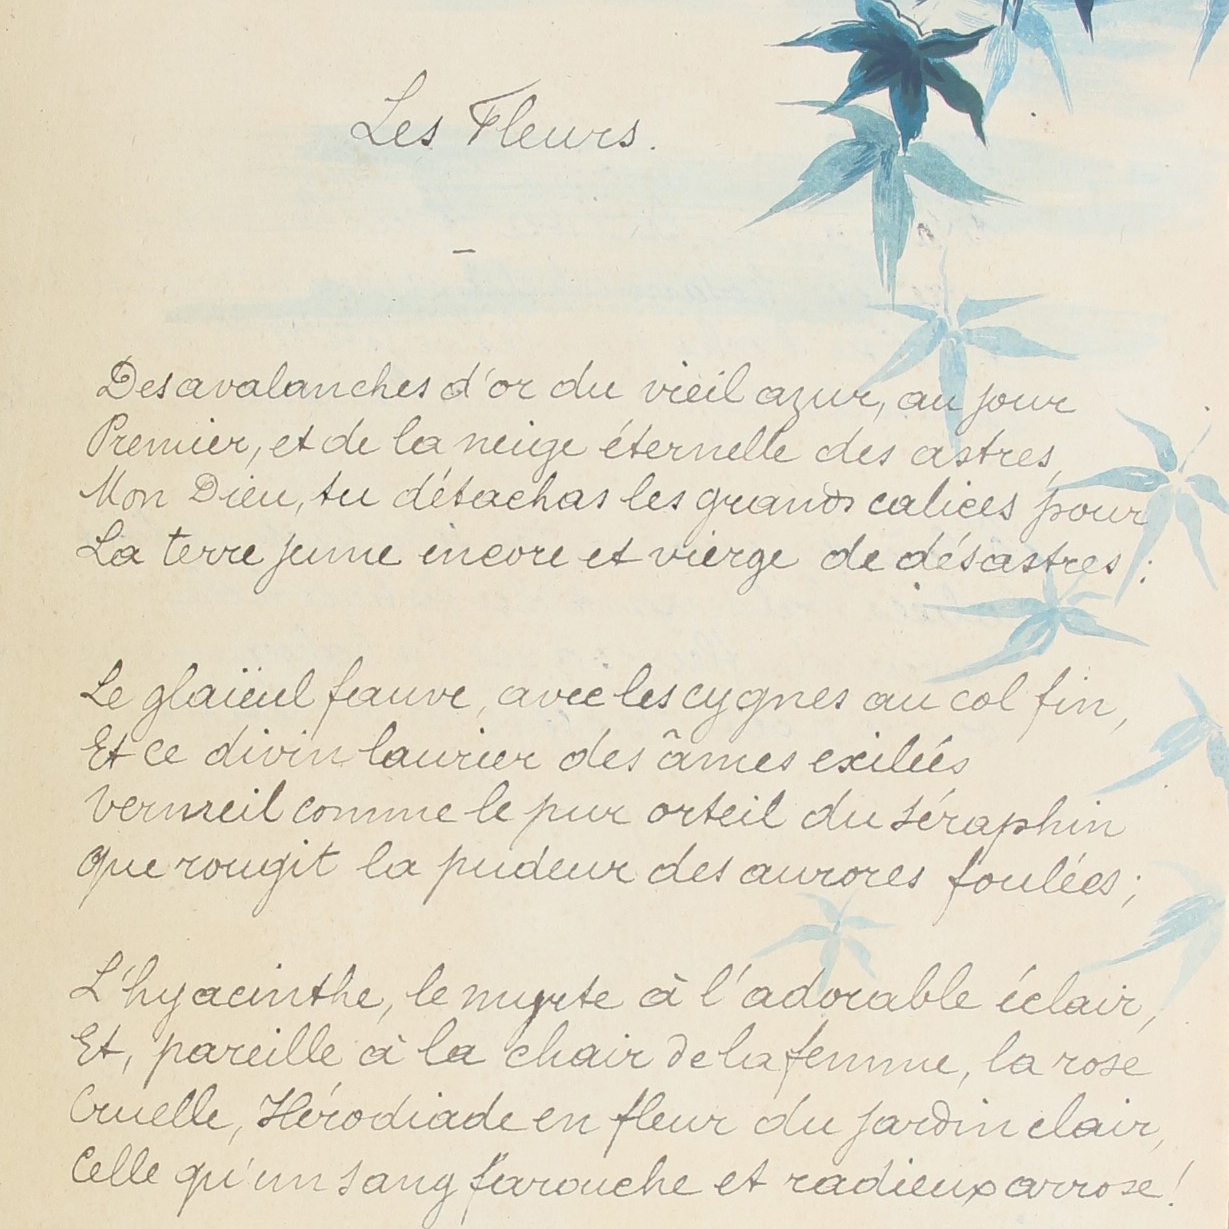 Les Fleurs.
—
Des avalanches d'or du vieil azur, au jour
Premier, et de la neige éternelle des astres,
Mon Dieu, tu détachas les grands calices pour
La terre jeune encore et vierge de désastres :
Le glaïeul fauve, avec les cygnes au col fin,
Et ce divin laurier des âmes exilées
Vermeil comme le pur orteil du séraphin
Que rougit la pudeur des aurores foulées ;
L'hyacinthe, le myrte à l'adorable éclair,
Et, pareille à la chair de la femme, la rose
Cruelle, Hérodiade en fleur du jardin clair,
Celle qu'un sang farouche et radieux arrose !